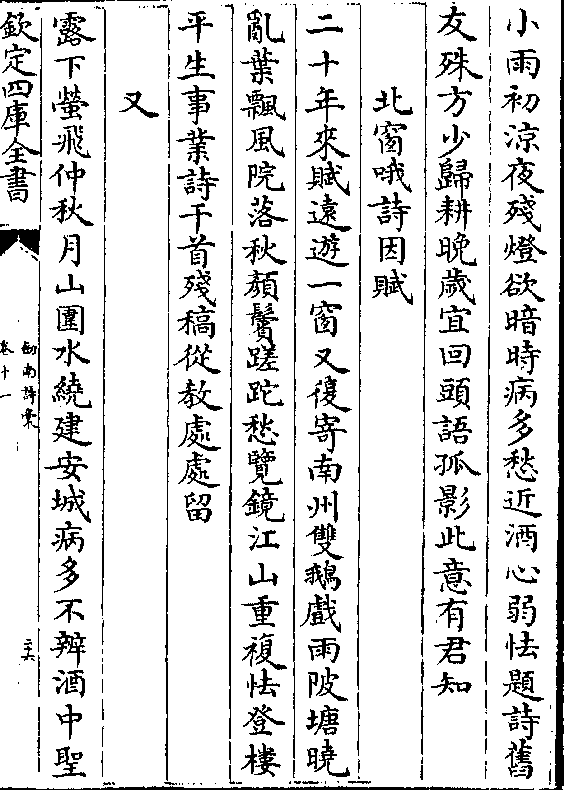 小雨初涼夜殘燈欲暗時病多愁近酒心弱怯題詩舊
友殊方少歸耕晚歲宜回頭語孤影此意有君知
北窗哦詩因賦
二十年來賦遠遊一窗又復寄南州雙鵝戲雨陂塘曉
亂葉飄風院落秋顏鬢蹉跎愁覽鏡江山重複怯登樓
平生事業詩千首殘稿從教處處留
又
露下螢飛仲秋月山圍水繞建安城病多不辨酒中聖
欽定四庫全書
劍南詩稾
卷十一
二六